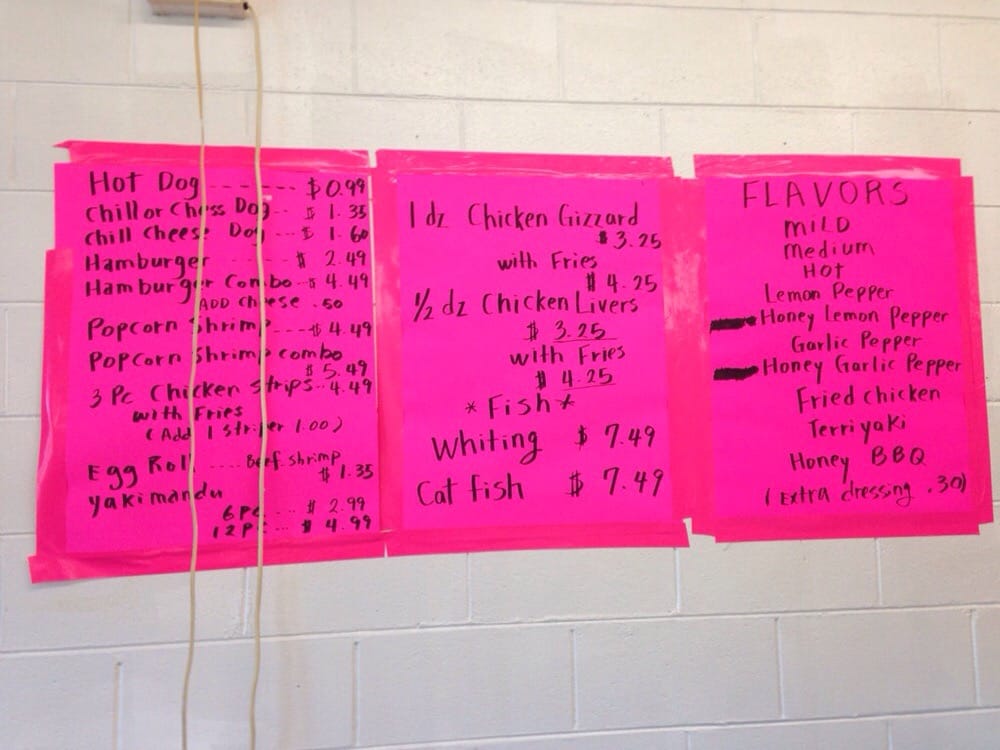 Hot Dog ------- $0.99
Chill or Chess Dog -- $ 1.35
Chill Cheese Dog -- $ 1.60
Hamburger ------ $ 2.49
Hamburger Combo -- $ 4.49
ADD cheese .50
Popcorn Shrimp ---- $ 4.49
Popcorn Shrimp combo
$ 5.49
3 Pc Chicken Strips -- 4.49
with Fries
(Add 1 Striper 1.00)
Egg Roll .... Beef. shrimp
$ 1.35
Yakimandu
6 Pc ... $ 2.99
12 Pc ... $ 4.99
1 dz Chicken Gizzard
$ 3.25
with Fries
$ 4.25
1/2 dz Chicken Livers
$ 3.25
with Fries
$ 4.25
* Fish *
Whiting $ 7.49
Cat fish $ 7.49
FLAVORS
MILD
Medium
HOT
Lemon Pepper
Honey Lemon Pepper
Garlic Pepper
Honey Garlic Pepper
Fried chicken
Terriyaki
Honey BBQ
(Extra dressing .30)